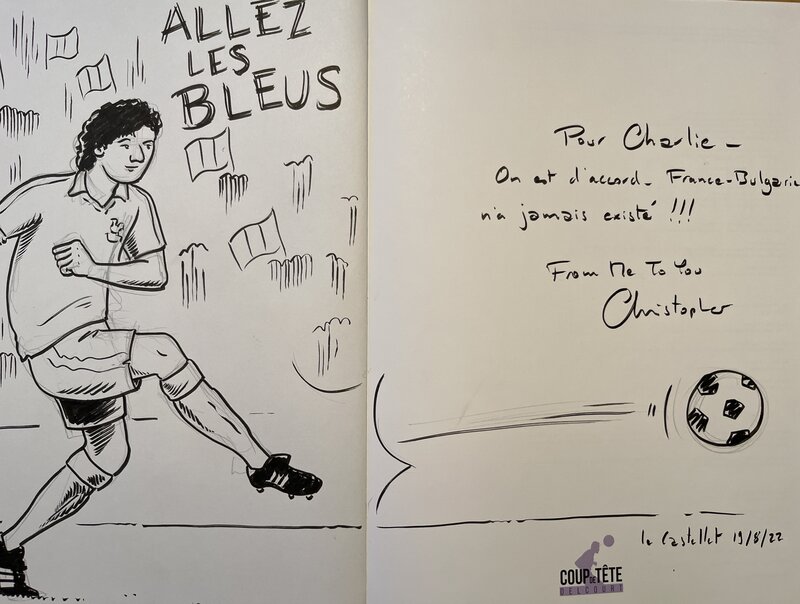 ALLEZ
LES
BLEUS
Pour Charlie -
On est d'accord - France-Bulgarie
n'a jamais existé !!!
From Me To You
Christopher
le Castellet 19/8/22
COUP DE TÊTE
DELCOURT